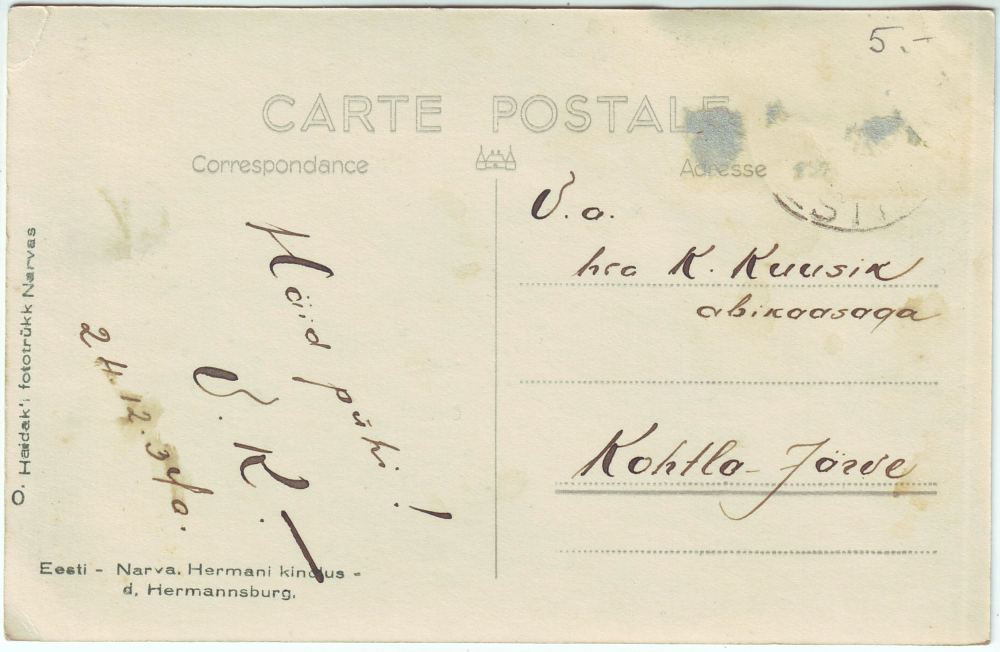 5.-
CARTE POSTALE
Correspondance
Adresse
V.a.
hra K. Kuusik
abikaasaga
Kohtla-Järve
Häid pühi!
V. K.
24.12.34a.
O. Haidak'i fototrükk Narvas
Eesti - Narva. Hermani kindlus -
d. Hermannsburg.